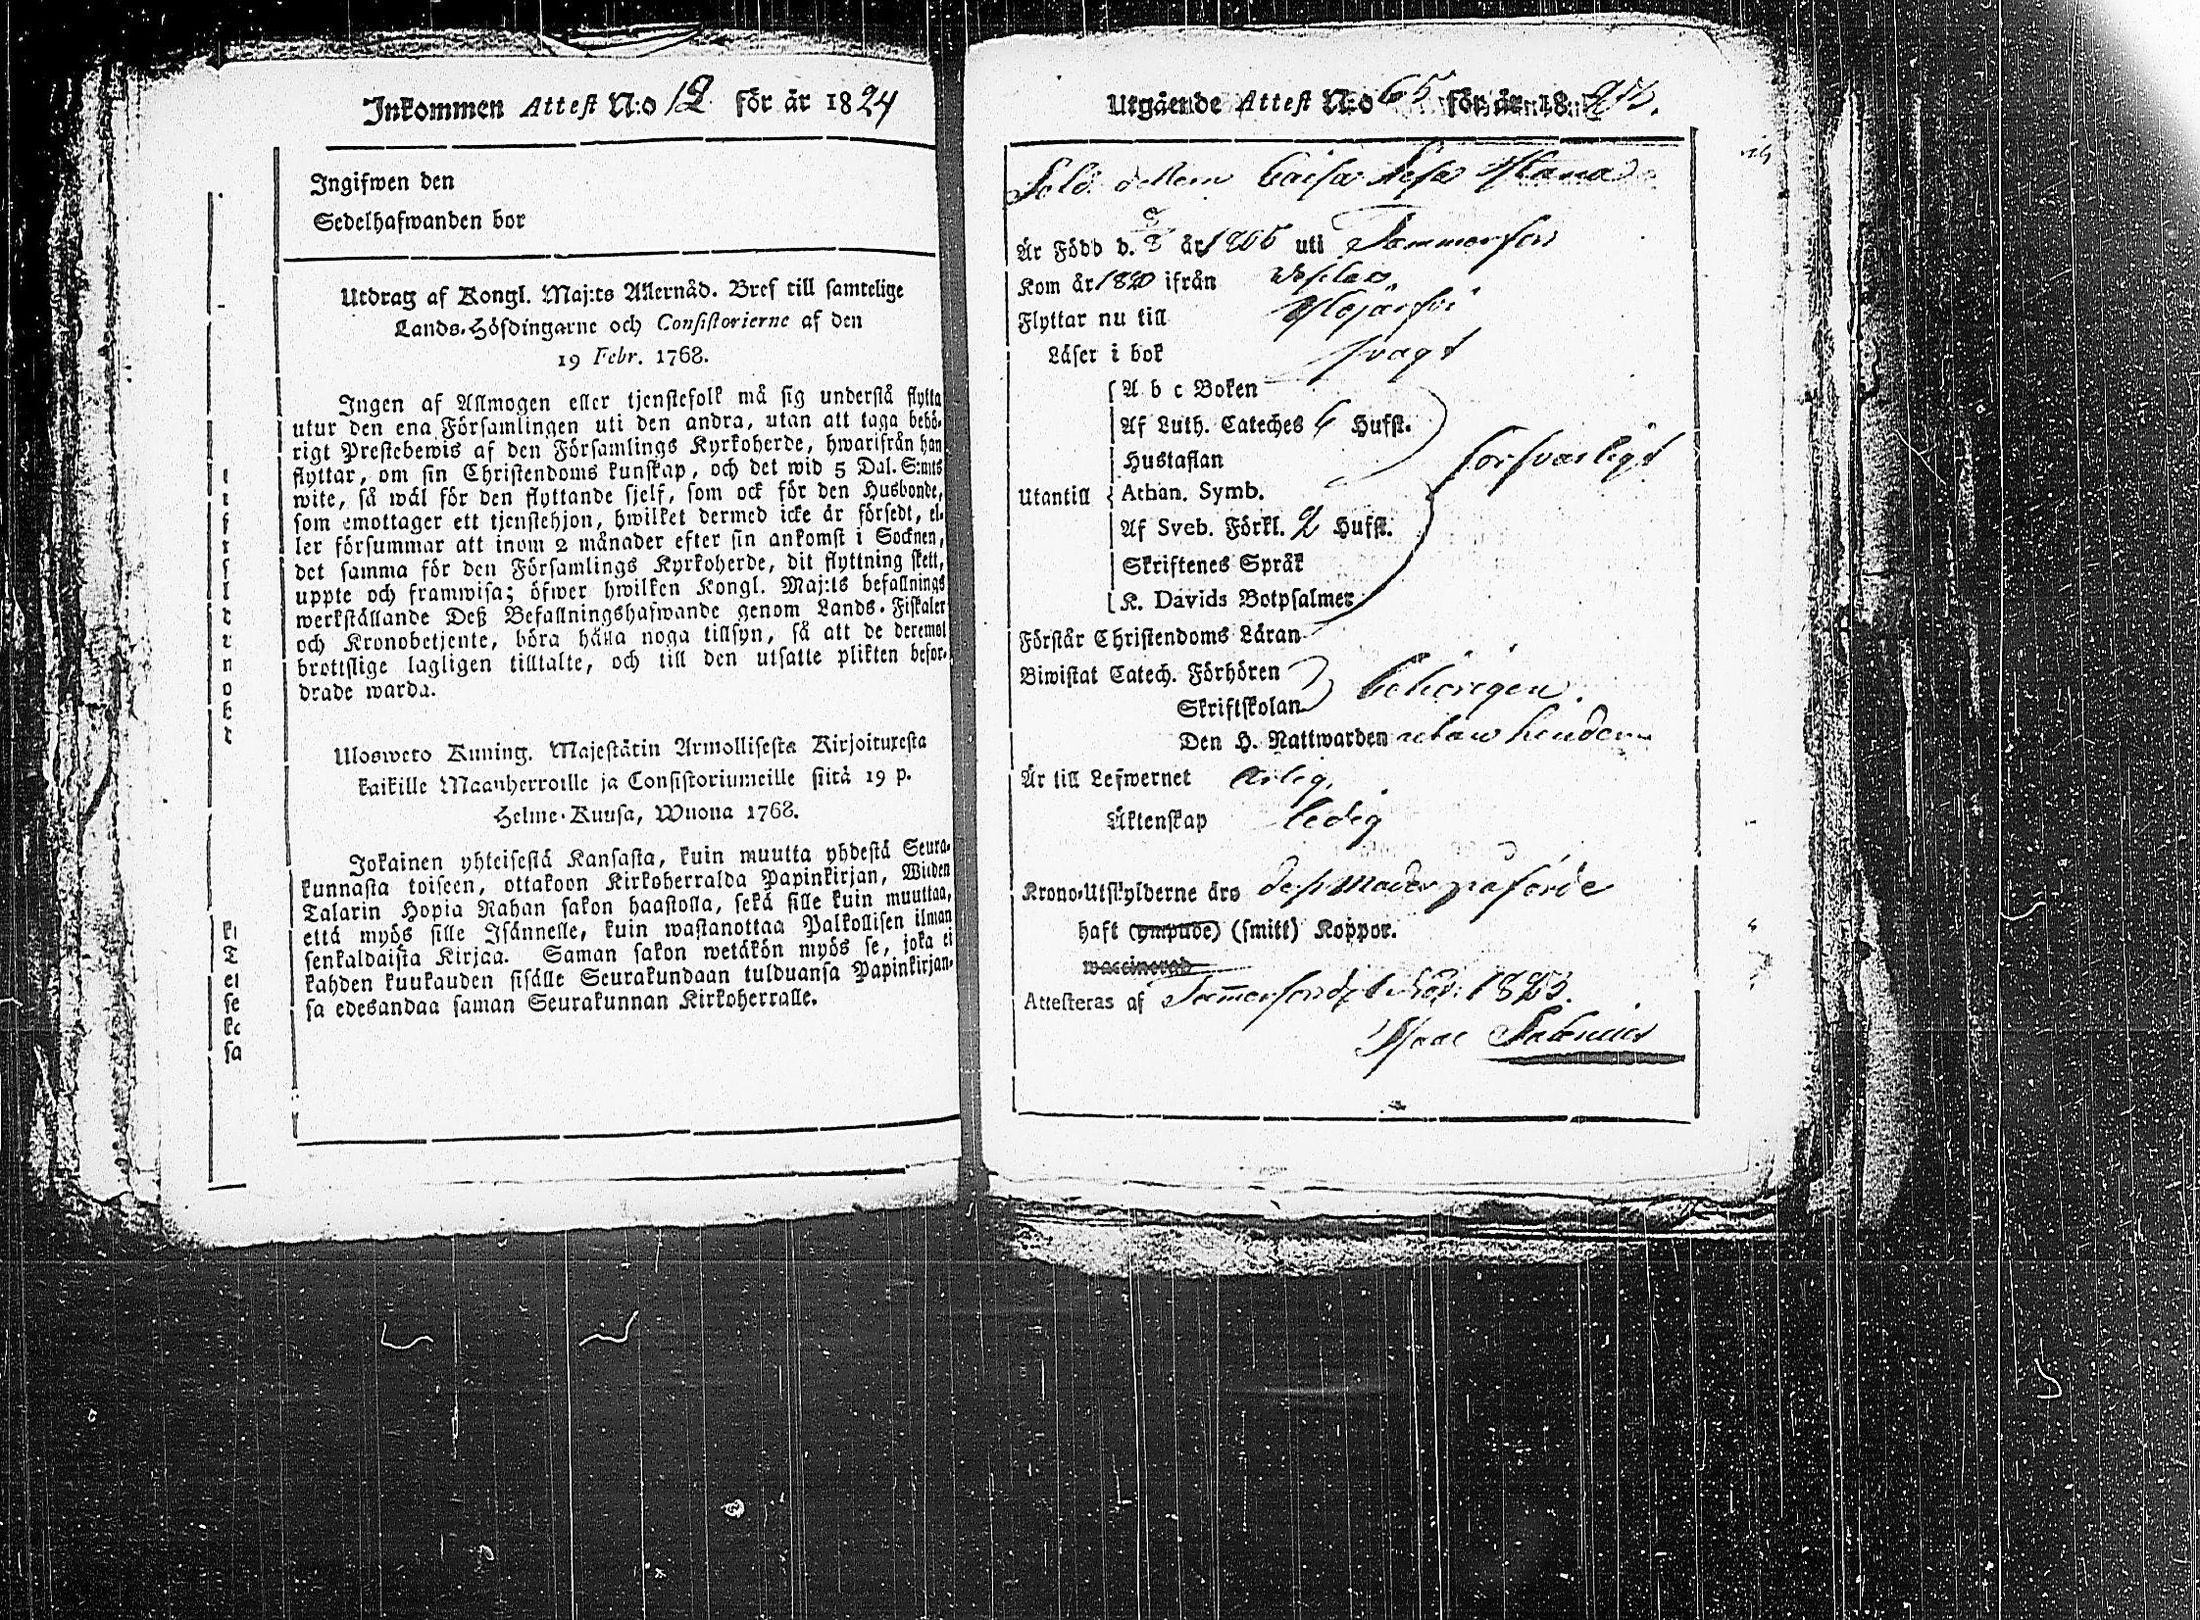 Inkommen Attest N:o 12 för år 1824
Ingifwen den
Sedelhafwanden bor
Utdrag af Kongl. Maj:ts Allernåd. Bref till samtelige
Lands-Höfdingarne och Consistorierne af den
19 Febr. 1768.
Ingen af Allmogen eller tjenstefolk må sig understå flytta
utur den ena Församlingen uti den andra, utan att taga behö-
rigt Prestebewis af den Församlings Kyrkoherde, hwarifrån han
flyttar, om sin Christendoms kunskap, och det wid 5 Dal. S:mts
wite, så wäl för den flyttande sjelf, som ock för den Husbonde,
som emottager ett tjenstehjon, hwilket dermed icke är försedt, el-
ler försummar att inom 2 månader efter sin ankomst i Socknen,
det samma för den Församlings Kyrkoherde, dit flyttning skett,
uppte och framwisa; öfwer hwilken Kongl. Maj:ts befallnings
werkställande Deß Befallningshafwande genom Lands-Fiskaler
och Kronobetjente, böra hålla noga tillsyn, så att de deremot
brottslige lagligen tilltalte, och till den utsatte plikten befor-
drade warda.
Uloswето Kuning. Majestätin Armollisesta Kirjoituxesta
kaikille Maanherroille ja Consistoriumeille siitä 19 p.
Helme-Kuusa, Wuona 1768.
Jokainen yhteisestä Kansasta, kuin muutta yhdestä Seura-
kunnasta toiseen, ottakoon Kirkoherralda Papinkirjan, Wiiden
Talarin Hopia Rahan sakon haastolla, sekä sille kuin muuttaa,
että myös sille Isännelle, kuin wastanottaa Palkollisen ilman
senkaldaista Kirjaa. Saman sakon wetäkön myös se, joka ei
kahden kuukauden sisälle Seurakundaan tulduansa Papinkirjan-
sa edesandaa saman Seurakunnan Kirkoherralle.
Utgående Attest N:o 65 för år 1823.
Sold. dottern Caisa Lesa
Är Född d. 8 år 1806 uti Tammerfors
Kom år 1820 ifrån
Flyttar nu till
Läser i bok svagt
A b c Boken
Af Luth. Cateches 6 Hufst.
Hustaflan
försvarligt
Utantill Athan. Symb.
Af Sveb. Förkl. 2 Hufst.
Skriftenes Språk
K. Davids Botpsalmer
Förstår Christendoms Läran
Biwistat Catech. Förhören
behörigen.
Skriftskolan
Den H. Nattwarden utan hinder
Är till Lefwernet ärlig,
Äktenskap ledig
Krono-Utskylderne äro dess Moder påförde
haft (ympade) (smitt) Koppor.
waccinerad
Attesteras af Tammerfors d. 1823.
Isaac